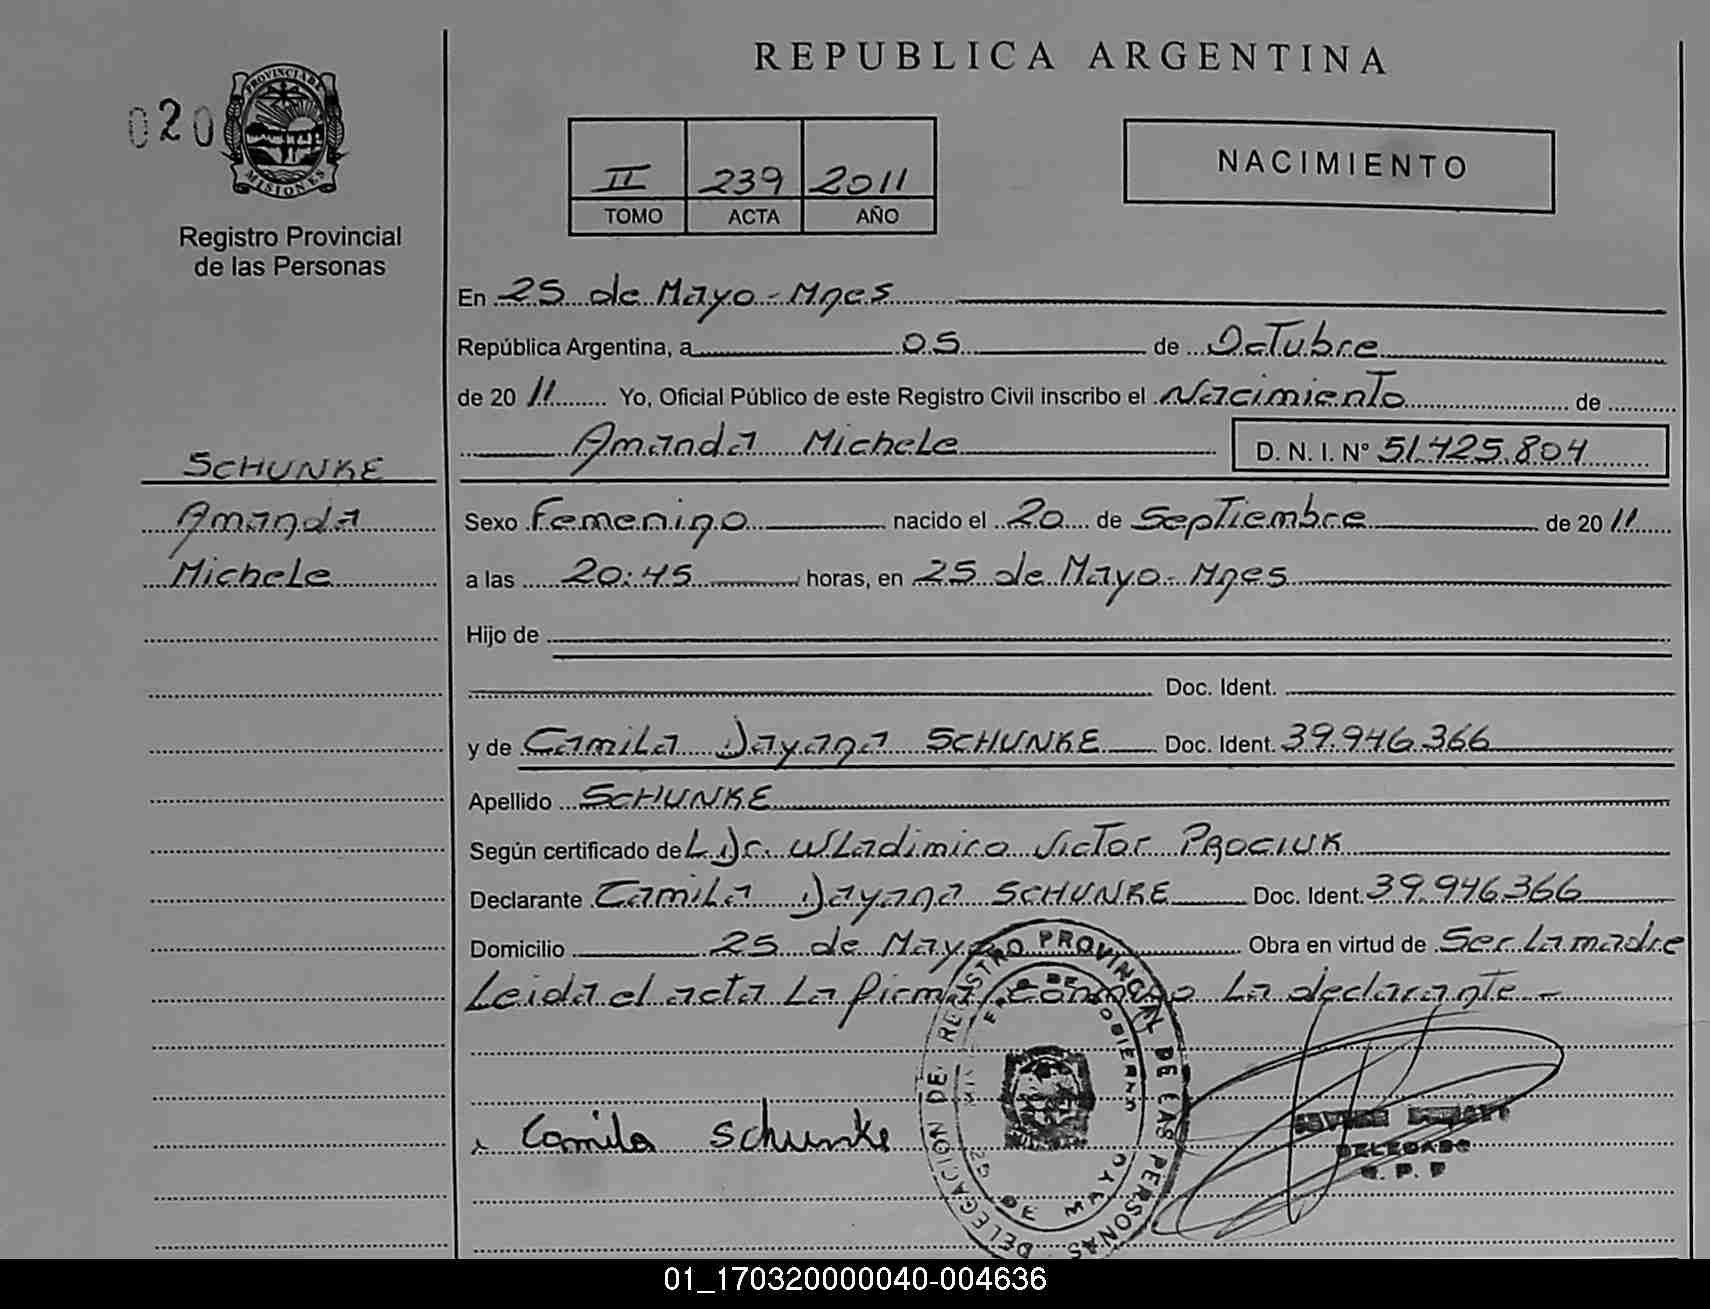 REPUBLICA ARGENTINA
020
PROVINCIA DE
MISIONES
Registro Provincial
de las Personas
II 239 2011
TOMO ACTA AÑO
NACIMIENTO
En 25 de Mayo - Mnes
República Argentina, a 05 de Octubre
de 20 11 Yo, Oficial Público de este Registro Civil inscribo el Nacimiento de
Amanda Michele D. N. I. Nº 51.425.804
SCHUNKE
Amanda
Michele
Sexo Femenino nacido el 20 de Septiembre de 20 11
a las 20:45 horas, en 25 de Mayo - Mnes
Hijo de
Doc. Ident.
y de Camila Dayana SCHUNKE Doc. Ident. 39.946.366
Apellido SCHUNKE
Según certificado de L Dr. Wladimiro Victor PROCIUK
Declarante Camila Dayana SCHUNKE Doc. Ident. 39.946.366
Domicilio 25 de Mayo Obra en virtud de Ser La madre
Leida el acta La firma conmigo La declarante -
Camila Schunke
DELEGACION DEL REGISTRO PROVINCIAL DE LAS PERSONAS
25 DE MAYO
DELEGADO
R. P. P
01_170320000040-004636